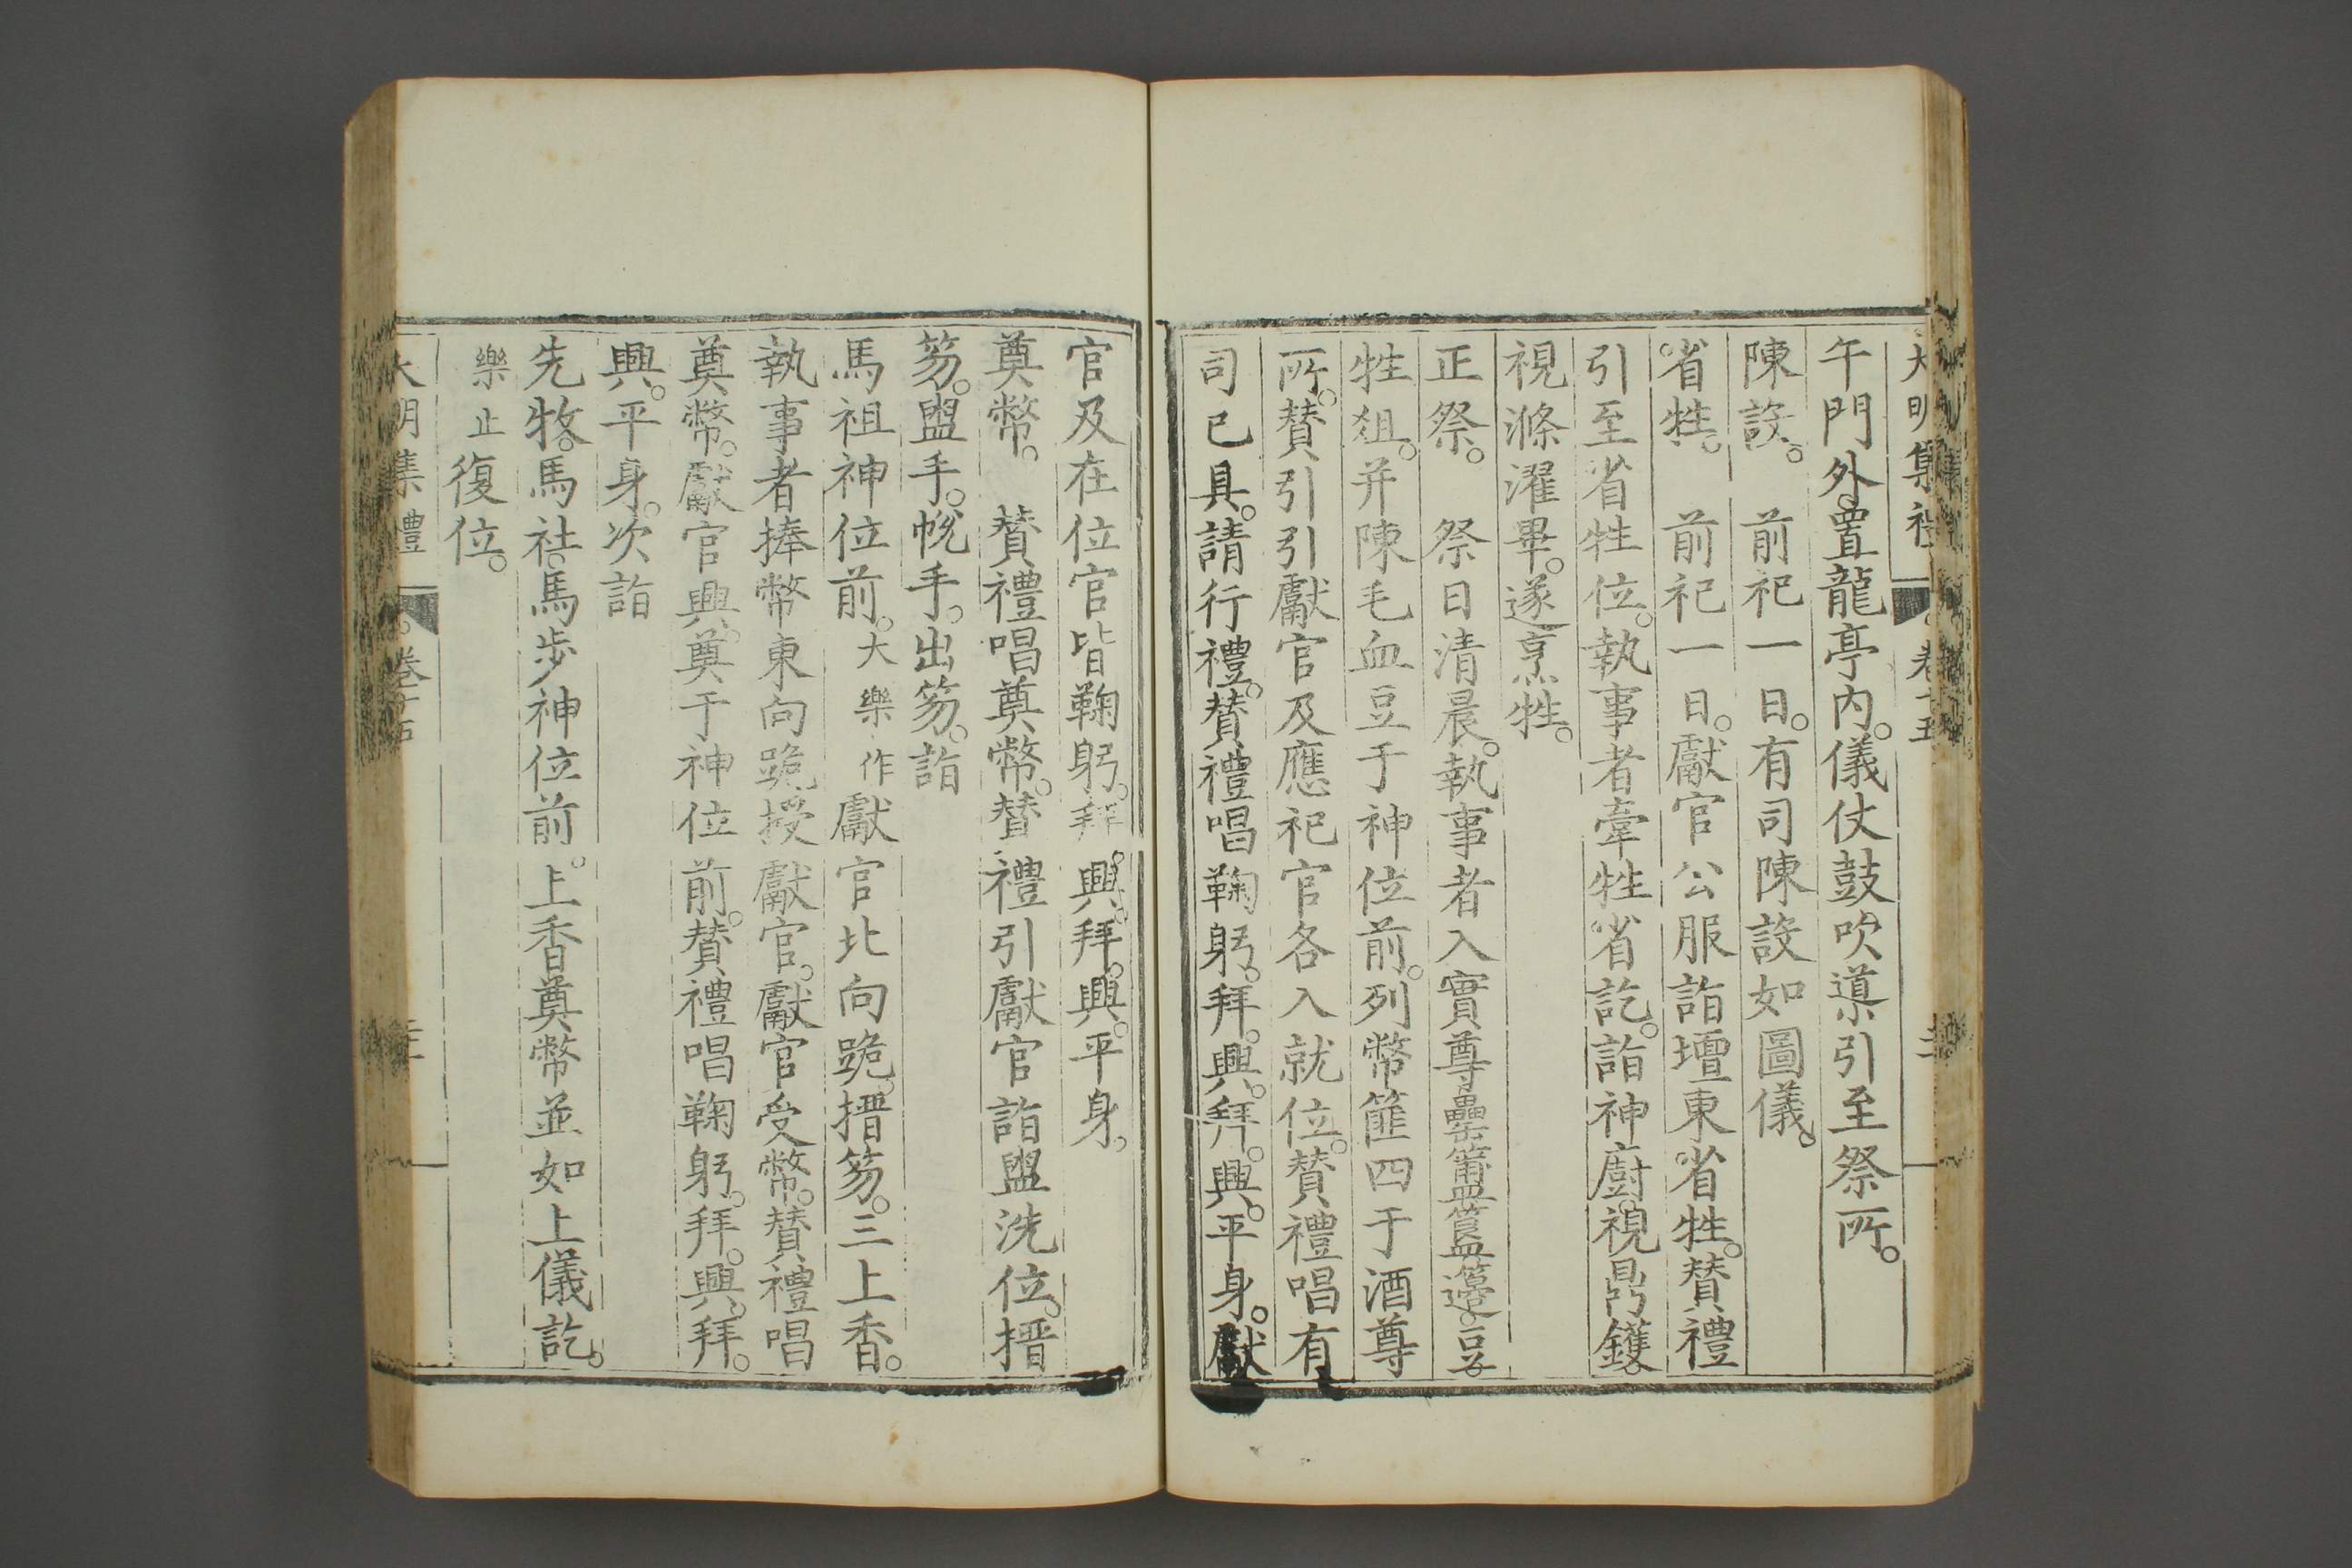 大明集禮 卷十五
午門外。置龍亭內。儀仗鼓吹導引至祭所。
陳設。 前祀一日。有司陳設如圖儀。
省牲。 前祀一日。獻官公服詣壇東省牲。贊禮
引至省牲位。執事者牽牲省訖。詣神廚。視鼎鑊。
視滌濯畢。遂烹牲。
正祭。 祭日清晨。執事者入實尊罍簠簋籩豆。
牲俎。并陳毛血豆于神位前。列幣篚四于酒尊
所。贊引引獻官及應祀官各入就位。贊禮唱有
司已具。請行禮。贊禮唱鞠躬。拜。興。拜。興。平身。獻
官及在位官皆鞠躬。拜。興。拜。興。平身。
奠幣。 贊禮唱奠幣。贊禮引獻官詣盥洗位。搢
笏。盥手。帨手。出笏。詣
馬祖神位前。大樂作獻官北向跪。搢笏。三上香。
執事者捧幣東向跪授獻官。獻官受幣。贊禮唱
奠幣。獻官興。奠于神位前。贊禮唱鞠躬。拜。興。拜。
興。平身。次詣
先牧。馬社。馬步神位前。上香奠幣並如上儀訖。
樂止復位。
大明集禮 卷十五